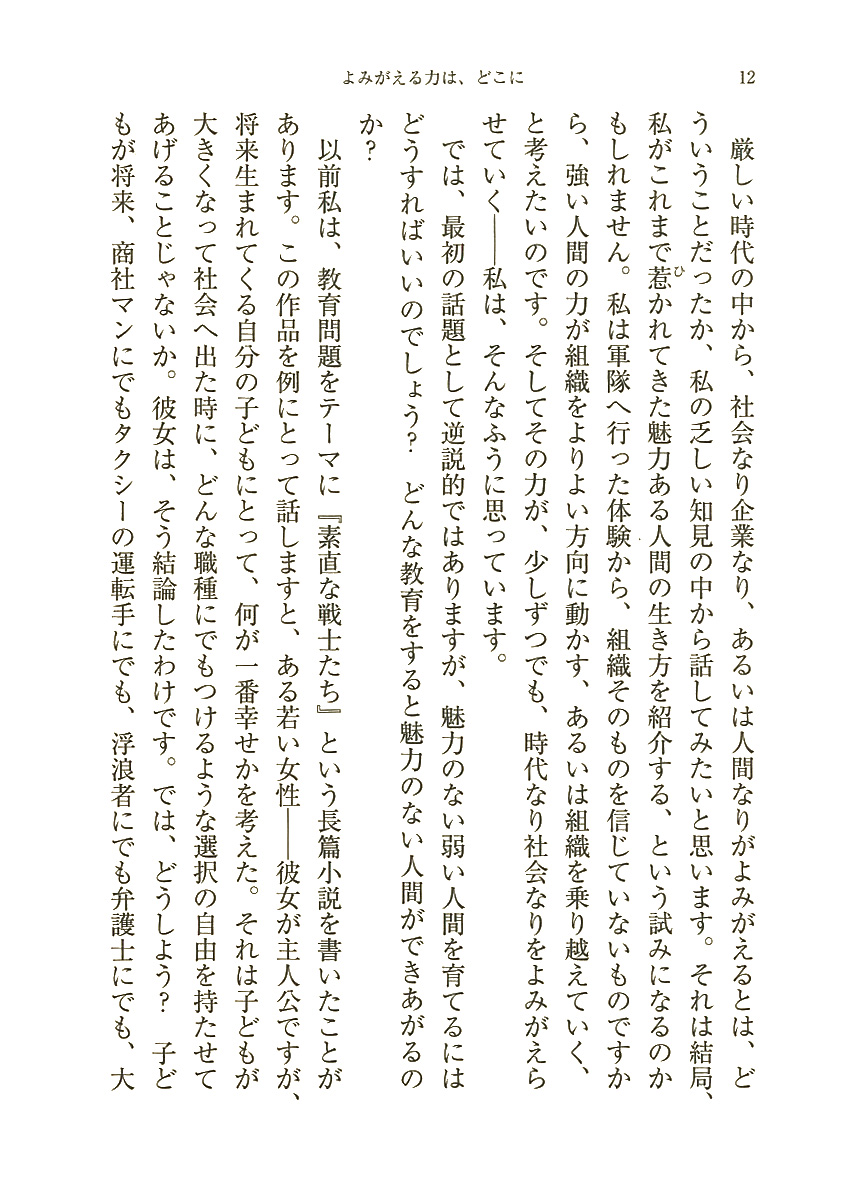 よみがえる力は、どこに
12
厳しい時代の中から、社会なり企業なり、あるいは人間なりがよみがえるとは、ど
ういうことだったか、私の乏しい知見の中から話してみたいと思います。それは結局、
私がこれまで惹かれてきた魅力ある人間の生き方を紹介する、という試みになるのか
ひ
もしれません。私は軍隊へ行った体験から、組織そのものを信じていないものですか
ら、強い人間の力が組織をよりよい方向に動かす、あるいは組織を乗り越えていく、
と考えたいのです。そしてその力が、少しずつでも、時代なり社会なりをよみがえら
せていく――私は、そんなふうに思っています。
では、最初の話題として逆説的ではありますが、魅力のない弱い人間を育てるには
どうすればいいのでしょう？　どんな教育をすると魅力のない人間ができあがるの
か？
以前私は、教育問題をテーマに『素直な戦士たち』という長篇小説を書いたことが
あります。この作品を例にとって話しますと、ある若い女性――彼女が主人公ですが、
将来生まれてくる自分の子どもにとって、何が一番幸せかを考えた。それは子どもが
大きくなって社会へ出た時に、どんな職種にでもつけるような選択の自由を持たせて
あげることじゃないか。彼女は、そう結論したわけです。では、どうしよう？　子ど
もが将来、商社マンにでもタクシーの運転手にでも、浮浪者にでも弁護士にでも、大